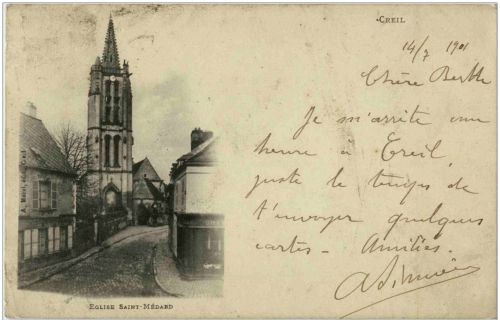 CREIL
14/7 1901
Chère Berthe
Je m'arrête une
heure à Creil,
juste le temps de
t'envoyer quelques
cartes - Amitiés.
EGLISE SAINT-MÉDARD